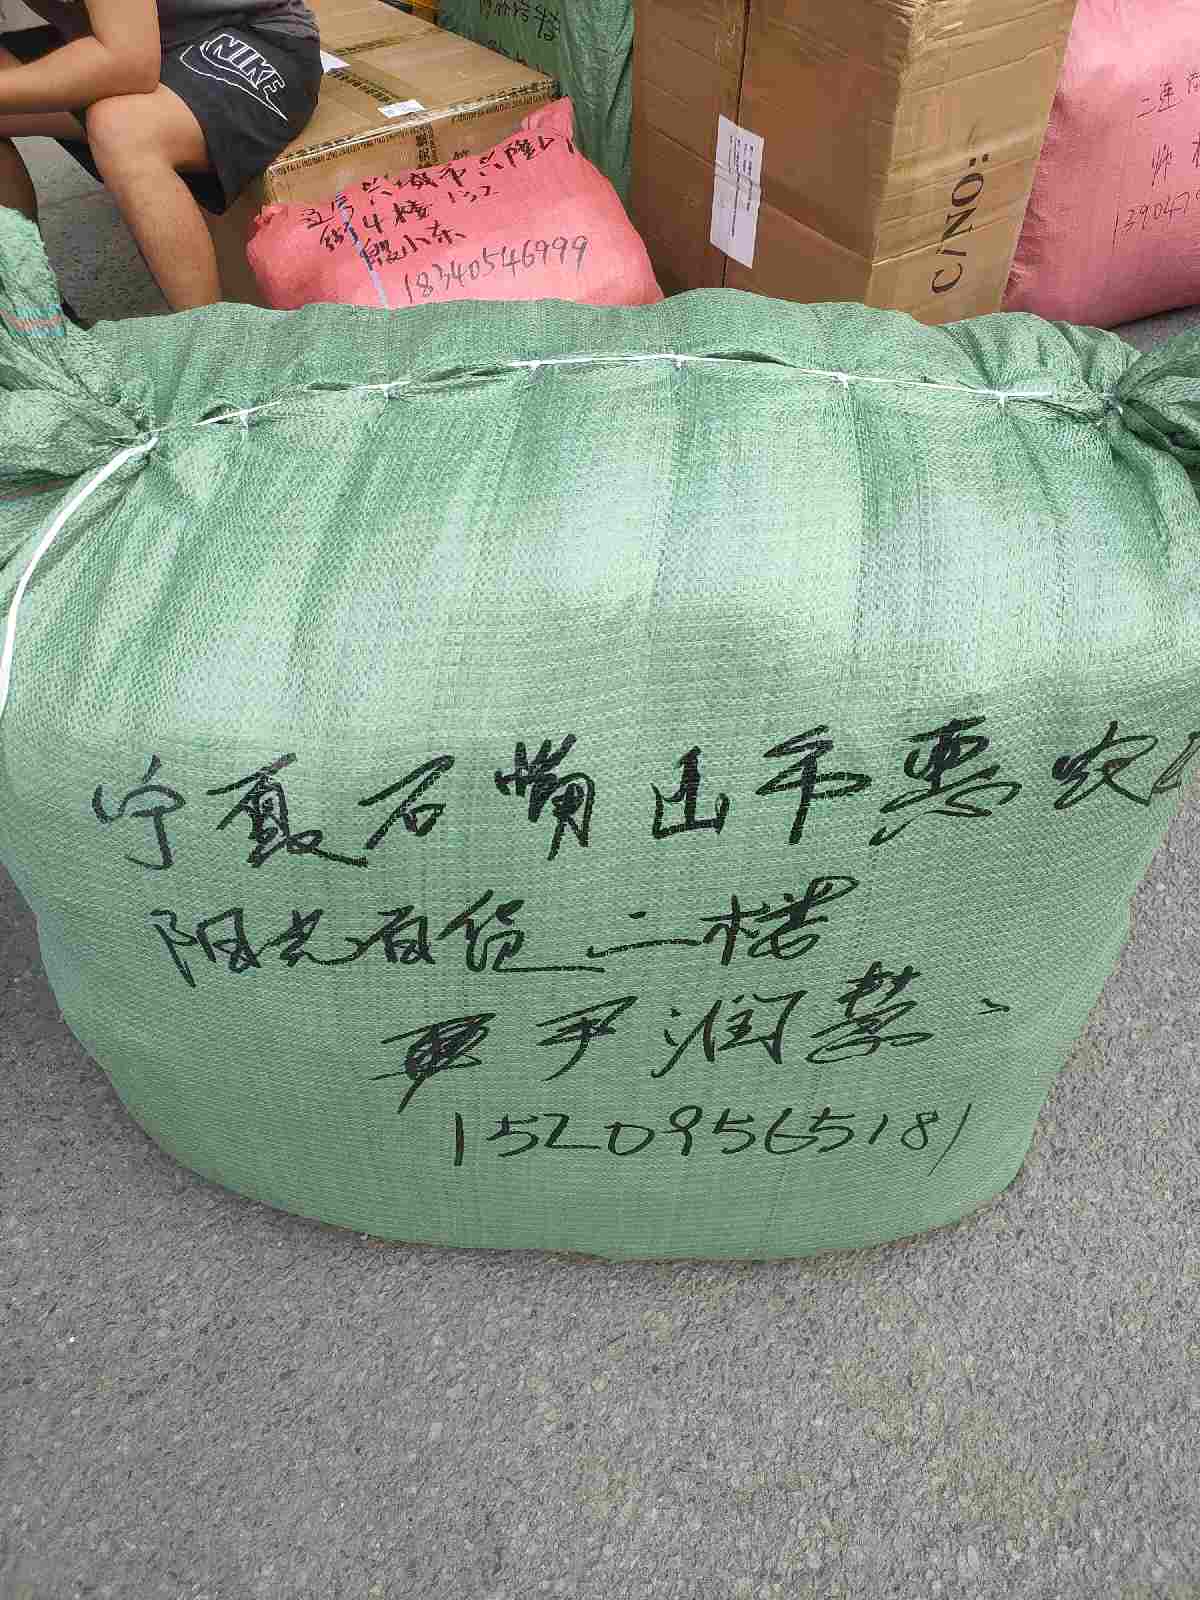 NIKE
兴城市兴隆
4楼132
段小东
18340546999
C/NO:
二连
宁夏石嘴山市惠农区
阳光百货二楼
尹润
15209565181